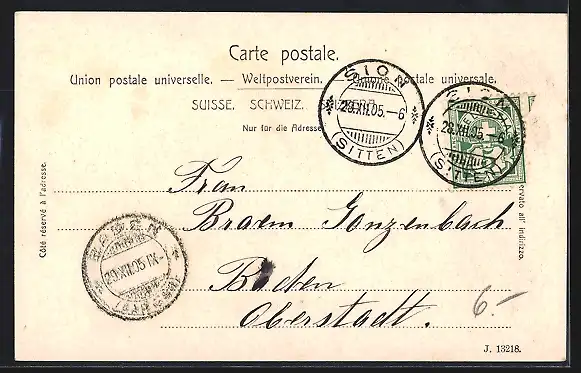 Carte postale.
Union postale universelle. — Weltpostverein. — Unione postale universale.
SUISSE. SCHWEIZ.
Nur für die Adresse
SION
29.XII.05.-6
(SITTEN)
SION
28.XII.05.-6
(SITTEN)
Côté réservé à l'adresse.
Frau
Braem Gonzenbach
Baden
Oberstadt.
BADEN
29.XII.05.IX-
(AARGAU)
6.-
J. 13218.